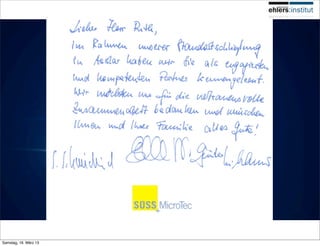 ehlers:institut
Lieber Herr Ruth,
im Rahmen unserer Standortschließung
in Asslar haben wir Sie als engagierten
und kompetenten Partner kennengelernt.
Wir möchten uns für die vertrauensvolle
Zusammenarbeit bedanken und wünschen
Ihnen und Ihrer Familie alles Gute!
SÜSS MicroTec
Samstag, 16. März 13